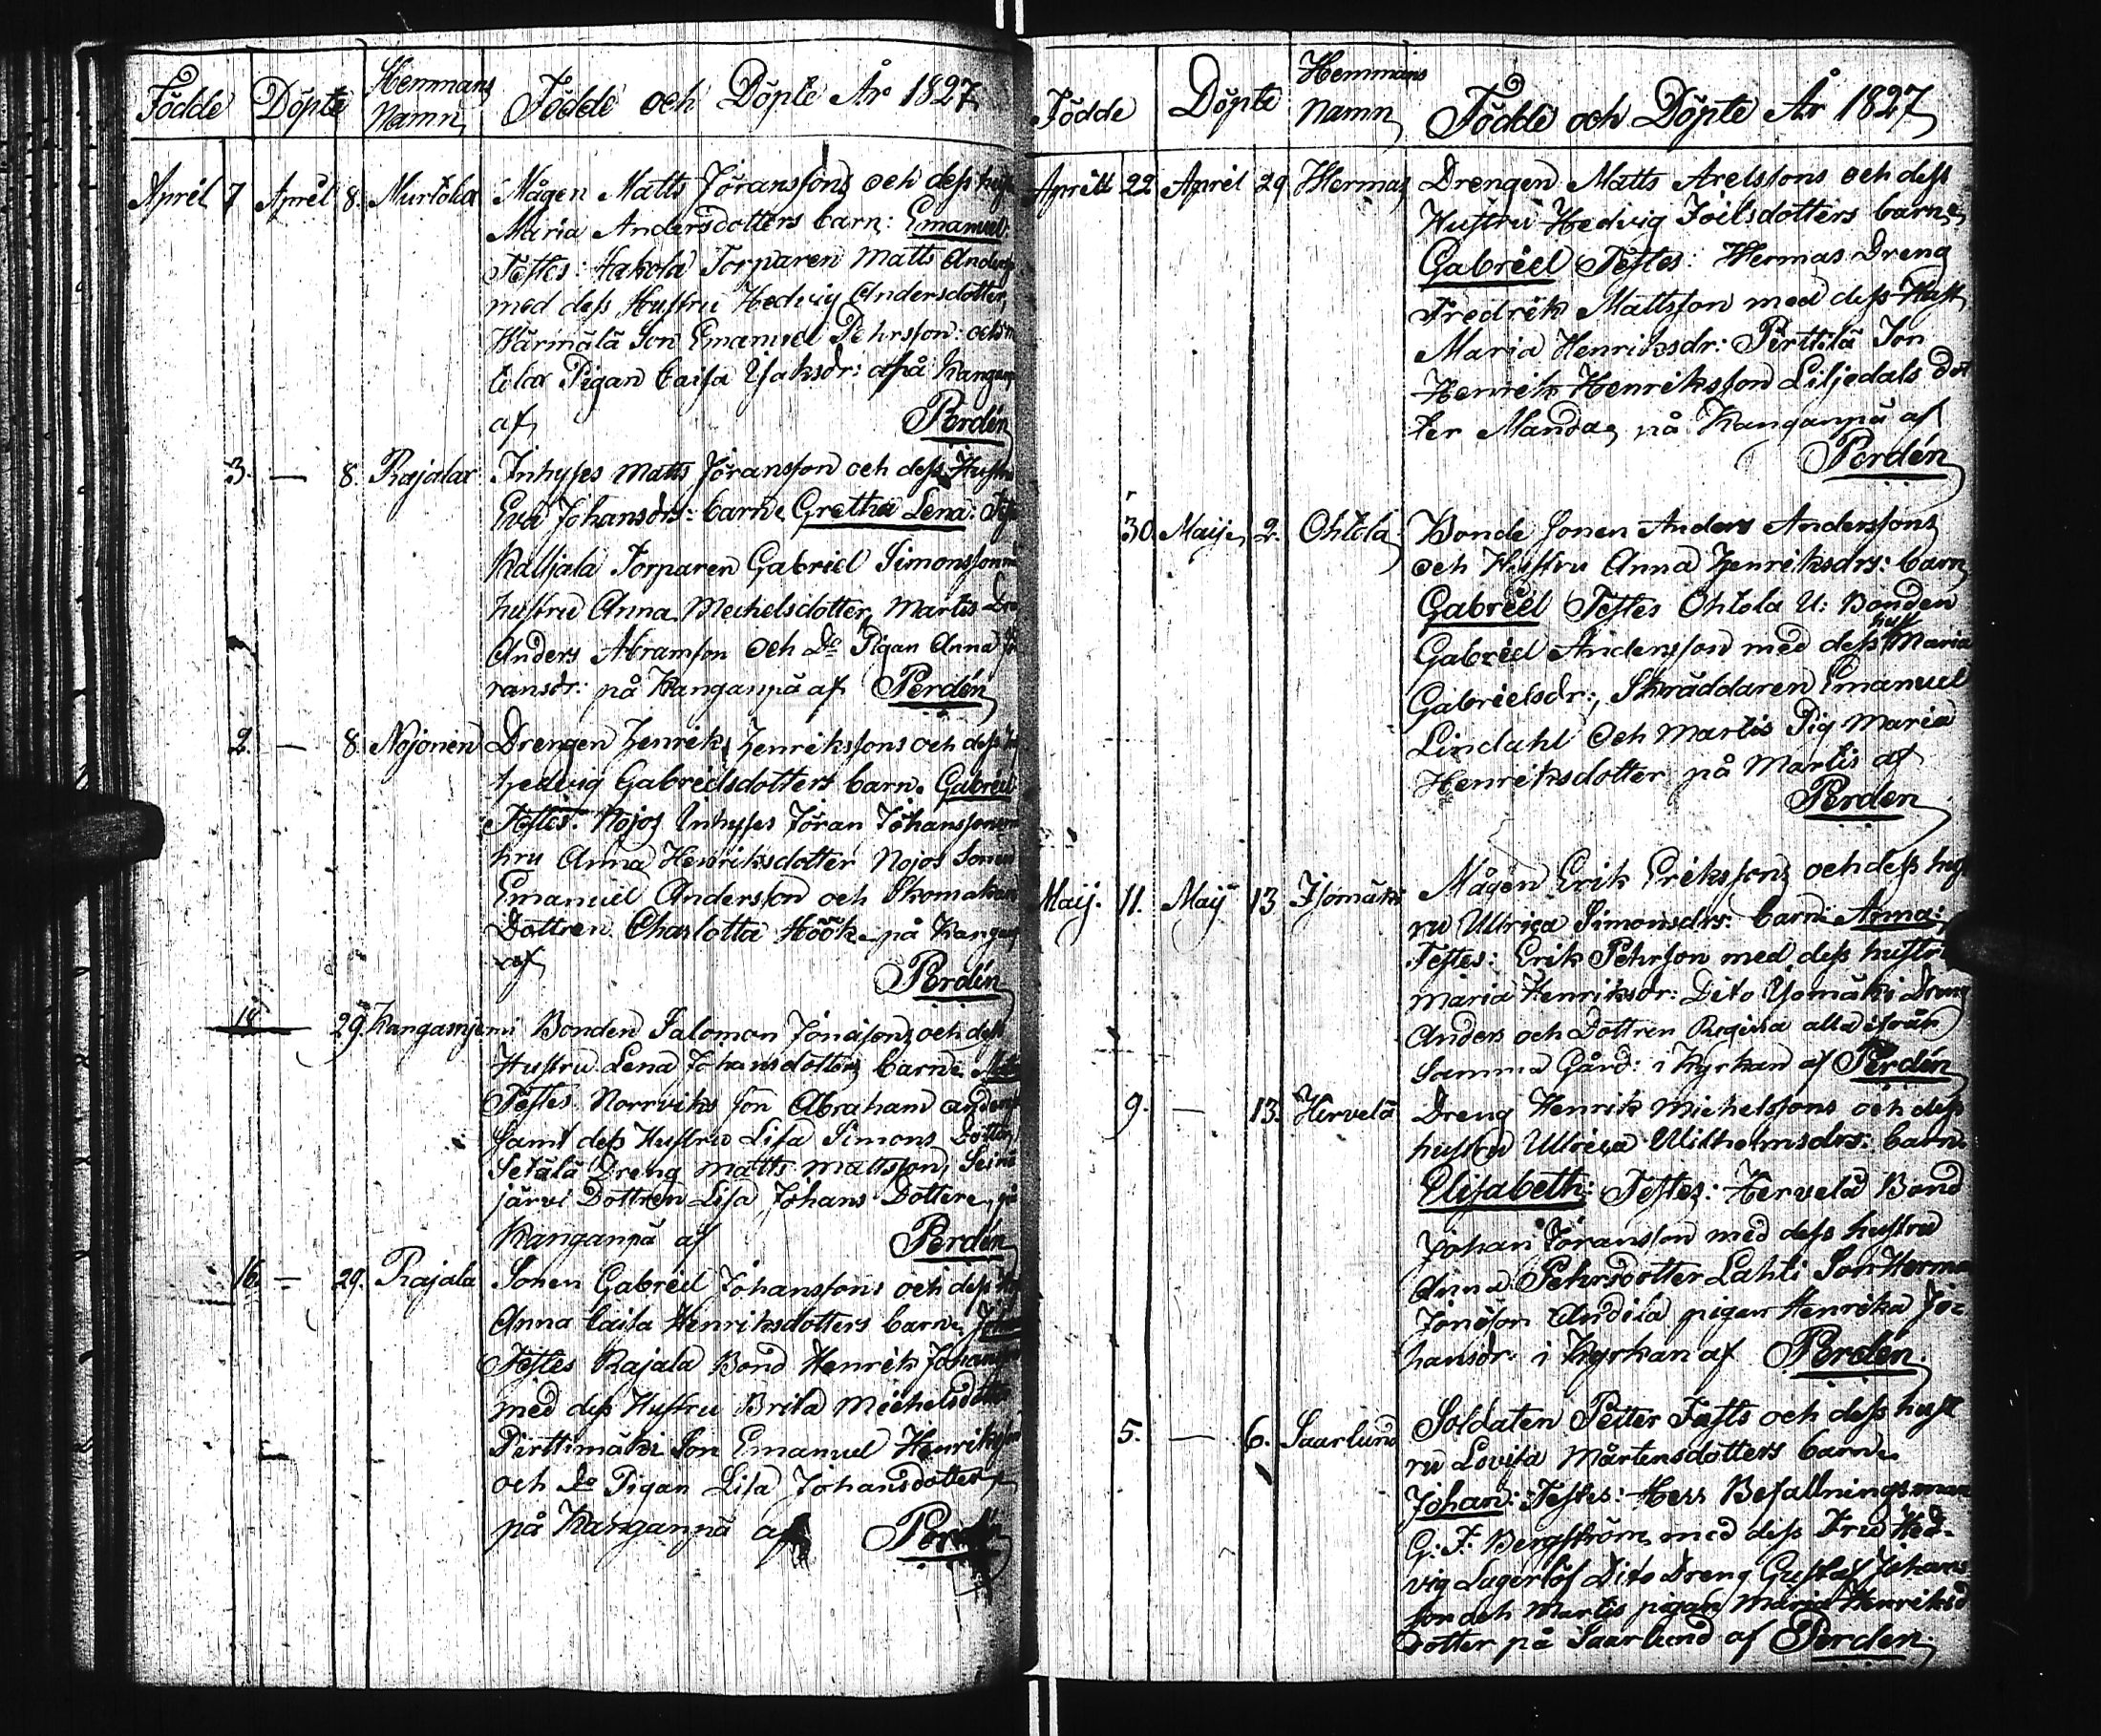 Födde Döpte Hemmans Namn Födde och Döpte År 1827
April 7 April 8. Murtola Mågen Matts Jöransons och dess
Maria Andersdotters barn: Emanuel.
Testes: Torparen Matts
med dess Hustru Hedvig Andersdotter,
Härmälä Son Emanuel Pehrsson
Pigan Caisa Isaksdr: på
af Perdén
3. — 8. Rajala Inhyses Matts Jöransson och dess Hustru
Eva Johansdrs: barn Gretha Lena:
Torparen Gabriel Simonsson
hustru Anna Michelsdotter, Martis
Anders Abramson och Do Pigan Anna Jö
ransdr: på Kanganpä af Perdén
2. — 8. Nojonen Drengen Henrik Henrikssons och dess
Hedvig Gabrielsdotters barn. Gabriel
Testes: Nojos Inhyses Jöran Johansson
tru Anna Henriksdotter Nojos Sonen
Emanuel Andersson och Skomakar
Dottren Charlotta Höök på
af Perdén
18 29. Kangasnjemi Bonden Salomon Jonæsons och dess
Hustru Lena Johansdotters barn
Testes Norrviks Son Abraham
samt dess Hustru Lisa Simons Dotter,
Setälä Dreng Matts Mattsson, Seinä
järvi Dottren Lisa Johans Dotter, på
Kanganpä af Perdén
16. — 29. Rajala Sonen Gabriel Johanssons och dess
Anna Caisa Henriksdotters barn
Testes Rajala Bond Henrik
med dess Hustru Brita Michelsdotter
Perttimäki Son Emanuel Henriksson
och Do Pigan Lisa Johansdotter,
på Kanganpä af Perdén
Födde Döpte Hemmans Namn Födde och Döpte År 1827
April 22 April 29 Hermas Drengen Matts Axelssons och dess
Hustru Hedvig Joilsdotters barn,
Gabriel Testes: Hermas Dreng
Fredrik Mattsson med dess Hust
Maria Henriksdr: Perttilä Son
Henrik Henriksson Liljedals Dot
ter Manda, på Kanganpä af
Perdén
30. Maij 2. Ohtola Bonde Sonen Anders Anderssons
och Hustru Anna Henriksdrs: barn
Gabriel Testes Ohtola U: Bonden
Gabriel Andersson med dess hust Maria
Gabrielsdr:, Skräddaren Emanuel
Lindahl och Martis Pig Maria
Henriksdotter på Martis af
Perden
Maij. 11. Maij 13 Isomäki Mågen Erik Erikssons och dess hust
ru Ulrica Simonsdrs: barn Anna:
Testes: Erik Pehrson med dess hustru
Maria Henriksdr: Dito Isomäki Dreng
Anders och Dottren Regina alla ifrån
Samma Gård: i Kyrkan af Perdén
9. — 13. Hervelä Dreng Henrik Michelssons och dess
hustru Ulrica Wilhelmsdrs: barn
Elisabeth: Testes: Hervelä Bond
Johan Jöransson med dess hustru
Anna Pehrsdotter Lahti Son Herman
Jonæson Andila pigan Henrika Jo=
hansdr: i Kyrkan af Perdén.
5. — 6. Saarlund Soldaten Petter Fasts och dess hust
ru Lovisa Mårtensdotters barn
Johan: Testes: Herr Befallningsman
G: F. Bergström med dess Fru Hed-
vig Lagerlöf Dito Dreng Gustaf Johans
son och Martis pigan Maria Henriks
Dotter på Saarlund af Perden